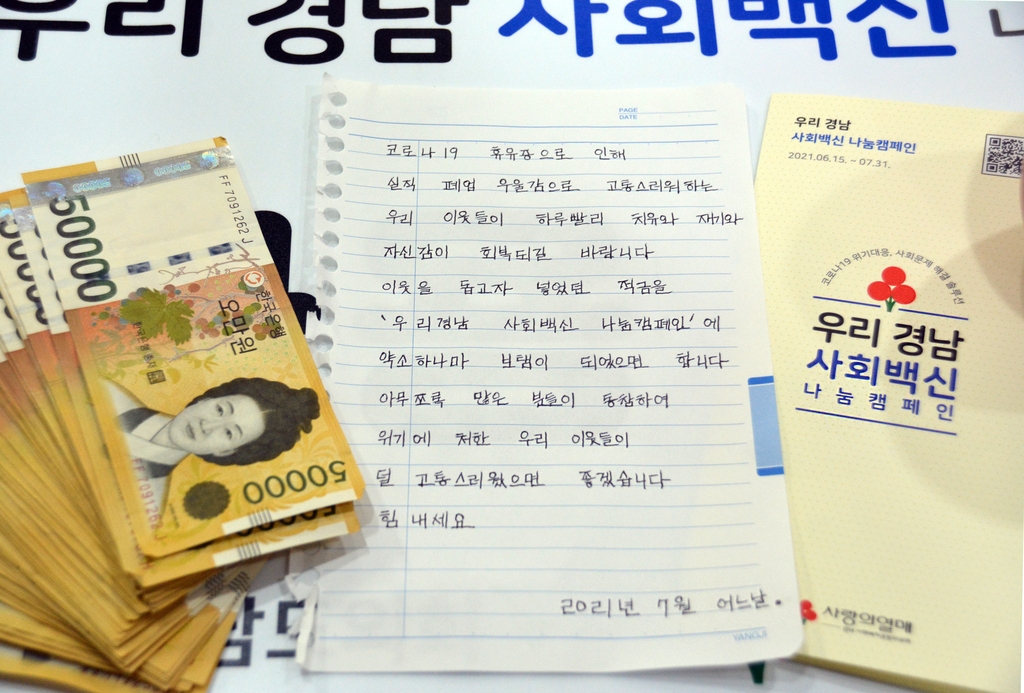 우리 경남 사회백신 나
PAGE
DATE
코로나19 휴유장으로 인해
실직 폐업 우울감으로 고통스러워하는
우리 이웃들이 하루빨리 치유와 재기와
자신감이 회복되길 바랍니다
이웃을 돕고자 넣었던 적금을
'우리경남 사회백신 나눔캠페인'에
약소하나마 보탬이 되었으면 합니다
아무쪼록 많은 분들이 동참하여
위기에 처한 우리 이웃들이
덜 고통스러웠으면 좋겠습니다
힘내세요
2021년 7월 어느날.
YANGJI
50000
FF7091262J
한국은행
오만원
50000
FF709126
우리 경남
사회백신 나눔캠페인
2021.06.15. ~ 07.31.
코로나19 위기대응, 사회문제 해결 솔루션
우리 경남
사회백신
나눔캠페인
사랑의열매